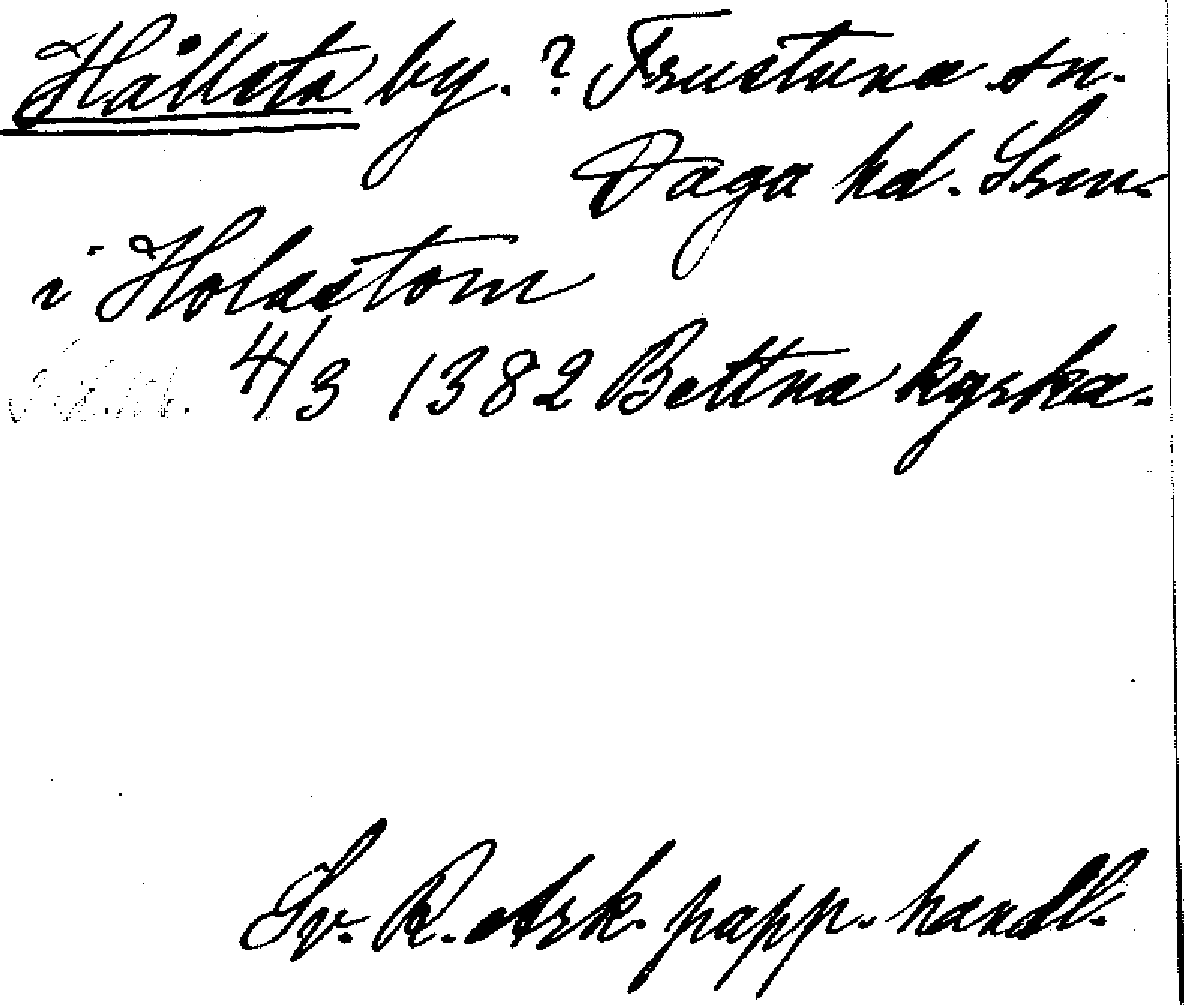 Hållsta by. ? Frustuna sn.
Daga hd. Srm.
i Holastom
4/3 1382 Bettna kyrka.
Sv. R. Ark. papp. handl.